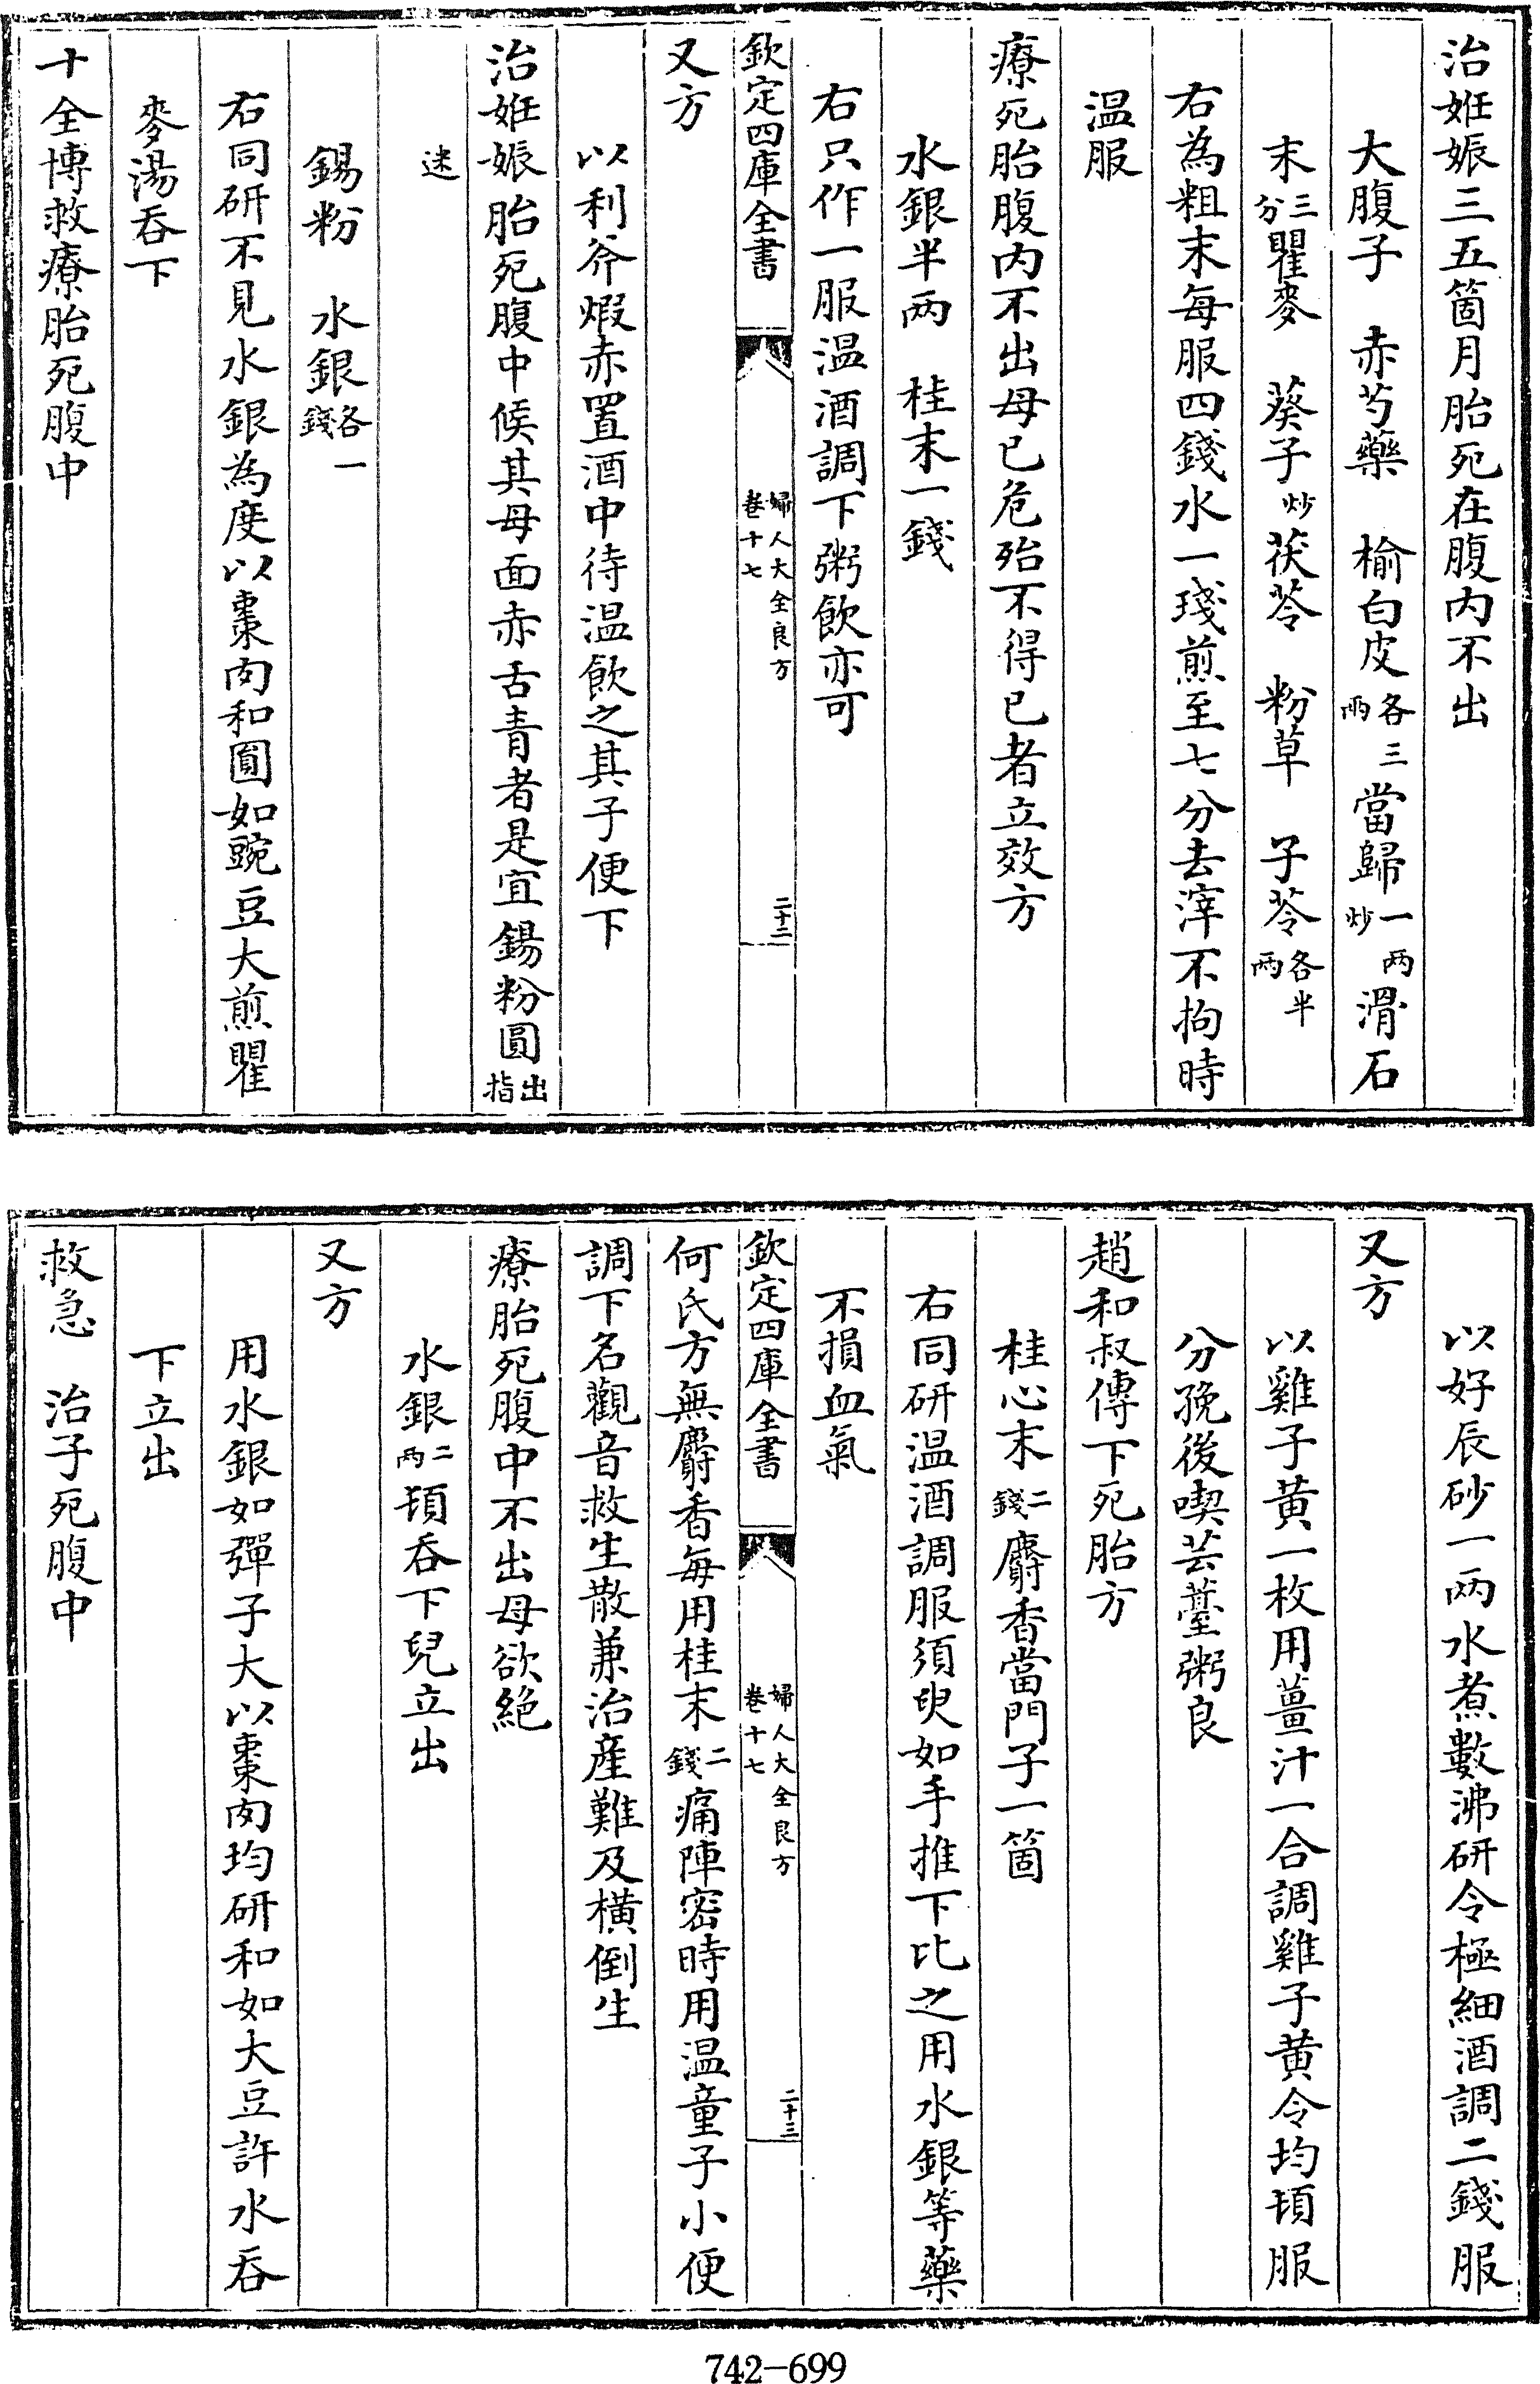 治姙娠三五箇月胎死在腹内不出
大腹子　赤芍藥　榆白皮各三兩當歸一兩炒滑石
末三分瞿麥　葵子炒茯苓　粉草　子芩各半兩
右為粗末每服四錢水一琖煎至七分去滓不拘時
温服
療死胎腹内不出母已危殆不得已者立效方
水銀半兩　桂末一錢
右只作一服温酒調下粥飲亦可
欽定四庫全書　婦人大全良方卷十七　二十二
又方
以利斧煆赤置酒中待温飲之其子便下
治姙娠胎死腹中候其母面赤舌青者是宜錫粉圓出指
迷
錫粉　水銀各一錢
右同研不見水銀為度以棗肉和圓如豌豆大煎瞿
麥湯吞下
十全博救療胎死腹中
以好辰砂一兩水煮數沸研令極細酒調二錢服
又方
以雞子黄一枚用薑汁一合調雞子黄令均頓服
分娩後喫芸薹粥良
趙和叔傳下死胎方
桂心末二錢麝香當門子一箇
右同研温酒調服須臾如手推下比之用水銀等藥
不損血氣
欽定四庫全書　婦人大全良方卷十七　二十三
何氏方無麝香每用桂末二錢痛陣密時用温童子小便
調下名觀音救生散兼治産難及橫倒生
療胎死腹中不出母欲絶
水銀二兩頓吞下兒立出
又方
用水銀如彈子大以棗肉均研和如大豆許水吞
下立出
救急　治子死腹中
742-699